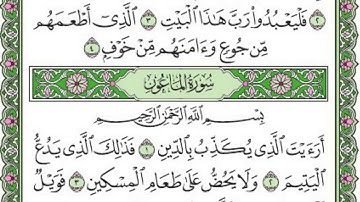 ٢ فَلْيَعْبُدُوا۟ رَبَّ هَٰذَا ٱلْبَيْتِ ٣ ٱلَّذِىٓ أَطْعَمَهُم
مِّن جُوعٍ وَءَامَنَهُم مِّنْ خَوْفٍۭ ٤
سُورَةُ المَاعُونِ
بِسْمِ ٱللَّهِ ٱلرَّحْمَٰنِ ٱلرَّحِيمِ
أَرَءَيْتَ ٱلَّذِى يُكَذِّبُ بِٱلدِّينِ ١ فَذَٰلِكَ ٱلَّذِى يَدُعُّ
ٱلْيَتِيمَ ٢ وَلَا يَحُضُّ عَلَىٰ طَعَامِ ٱلْمِسْكِينِ ٣ فَوَيْلٌ